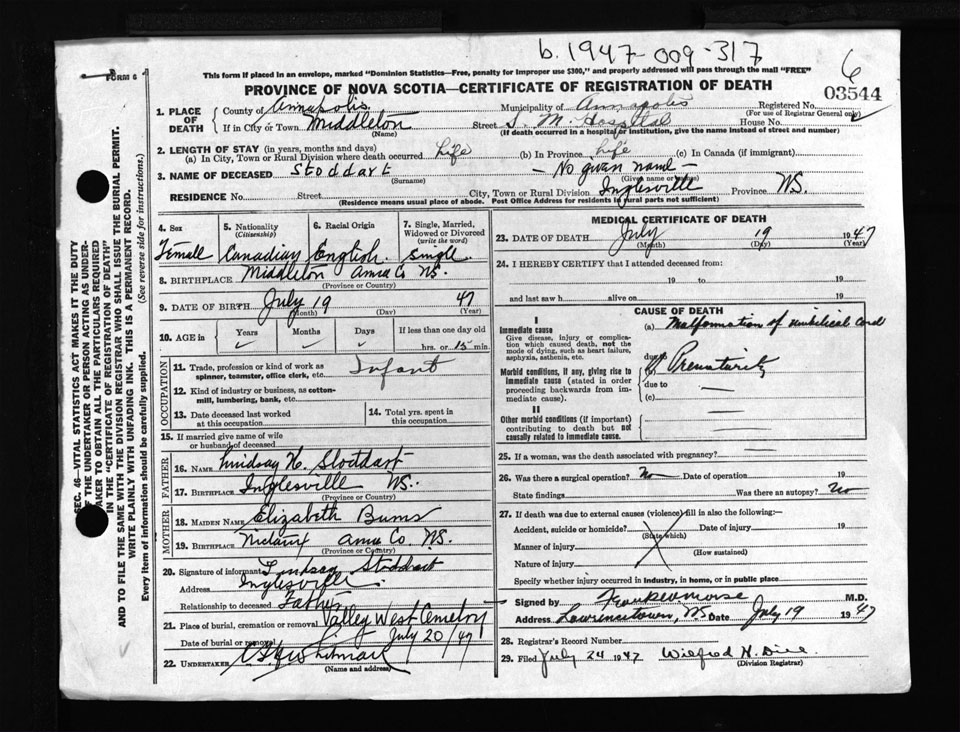 b. 1947-009-317
FORM 6
This form if placed in an envelope, marked "Dominion Statistics—Free, penalty for improper use $300," and properly addressed will pass through the mail "FREE"
6
PROVINCE OF NOVA SCOTIA—CERTIFICATE OF REGISTRATION OF DEATH
03544
1. PLACE OF DEATH County of Annapolis Municipality of Annapolis Registered No.
(For use of Registrar General only)
If in City or Town Middleton Street S. M. Hospital House No.
(Name) (If death occurred in a hospital or institution, give the name instead of street and number)
2. LENGTH OF STAY (in years, months and days)
(a) In City, Town or Rural Division where death occurred Life (b) In Province Life (c) In Canada (if immigrant)
3. NAME OF DECEASED Stoddart — No given name —
(Surname) (Given name or names)
RESIDENCE No. Street City, Town or Rural Division Inglesville Province NS.
(Residence means usual place of abode. Post Office Address for residents in rural parts not sufficient)
SEC. 46—VITAL STATISTICS ACT MAKES IT THE DUTY
OF THE UNDERTAKER OR PERSON ACTING AS UNDER-
TAKER TO OBTAIN ALL THE PARTICULARS REQUIRED
IN THE "CERTIFICATE OF REGISTRATION OF DEATH"
AND TO FILE THE SAME WITH THE DIVISION REGISTRAR WHO SHALL ISSUE THE BURIAL PERMIT.
WRITE PLAINLY WITH UNFADING INK. THIS IS A PERMANENT RECORD.
Every item of information should be carefully supplied. (See reverse side for instructions.)
4. Sex 5. Nationality (Citizenship) 6. Racial Origin 7. Single, Married, Widowed or Divorced (write the word)
Female Canadian English Single
8. BIRTHPLACE Middleton Anna Co NS.
(Province or Country)
9. DATE OF BIRTH July 19 47
(Month) (Day) (Year)
10. AGE in Years Months Days If less than one day old
hrs. or 15 min.
OCCUPATION
11. Trade, profession or kind of work as spinner, teamster, office clerk, etc. Infant
12. Kind of industry or business, as cotton-mill, lumbering, bank, etc.
13. Date deceased last worked at this occupation
14. Total yrs. spent in this occupation
15. If married give name of wife or husband of deceased
FATHER
16. NAME Lindsay H. Stoddart
17. BIRTHPLACE Inglesville NS.
(Province or Country)
MOTHER
18. MAIDEN NAME Elizabeth Burns
19. BIRTHPLACE Nictaux Anna Co. NS.
(Province or Country)
20. Signature of informant Lindsay Stoddart
Address Inglesville
Relationship to deceased Father
21. Place of burial, cremation or removal Valley West Cemetry
Date of burial or removal July 20/47
22. UNDERTAKER Whitman
(Name and address)
MEDICAL CERTIFICATE OF DEATH
23. DATE OF DEATH July 19 1947
(Month) (Day) (Year)
24. I HEREBY CERTIFY that I attended deceased from:
19 to 19
and last saw h alive on 19
CAUSE OF DEATH
I
Immediate cause
Give disease, injury or complication which caused death, not the mode of dying, such as heart failure, asphyxia, asthenia, etc.
(a) Malformation of umbilical cord
due to
Morbid conditions, if any, giving rise to immediate cause (stated in order proceeding backwards from immediate cause).
(b) Prematurity
due to —
(c) —
II
Other morbid conditions (if important) contributing to death but not causally related to immediate cause.
25. If a woman, was the death associated with pregnancy?
26. Was there a surgical operation? No Date of operation 19
State findings Was there an autopsy? No
27. If death was due to external causes (violence) fill in also the following:—
Accident, suicide or homicide? Date of injury 19
(State which)
Manner of injury
(How sustained)
Nature of injury
Specify whether injury occurred in industry, in home, or in public place
Signed by Frank E Morse M.D.
Address Lawrencetown, NS Date July 19 1947
28. Registrar's Record Number
29. Filed July 24 1947 Wilfred H.
(Division Registrar)